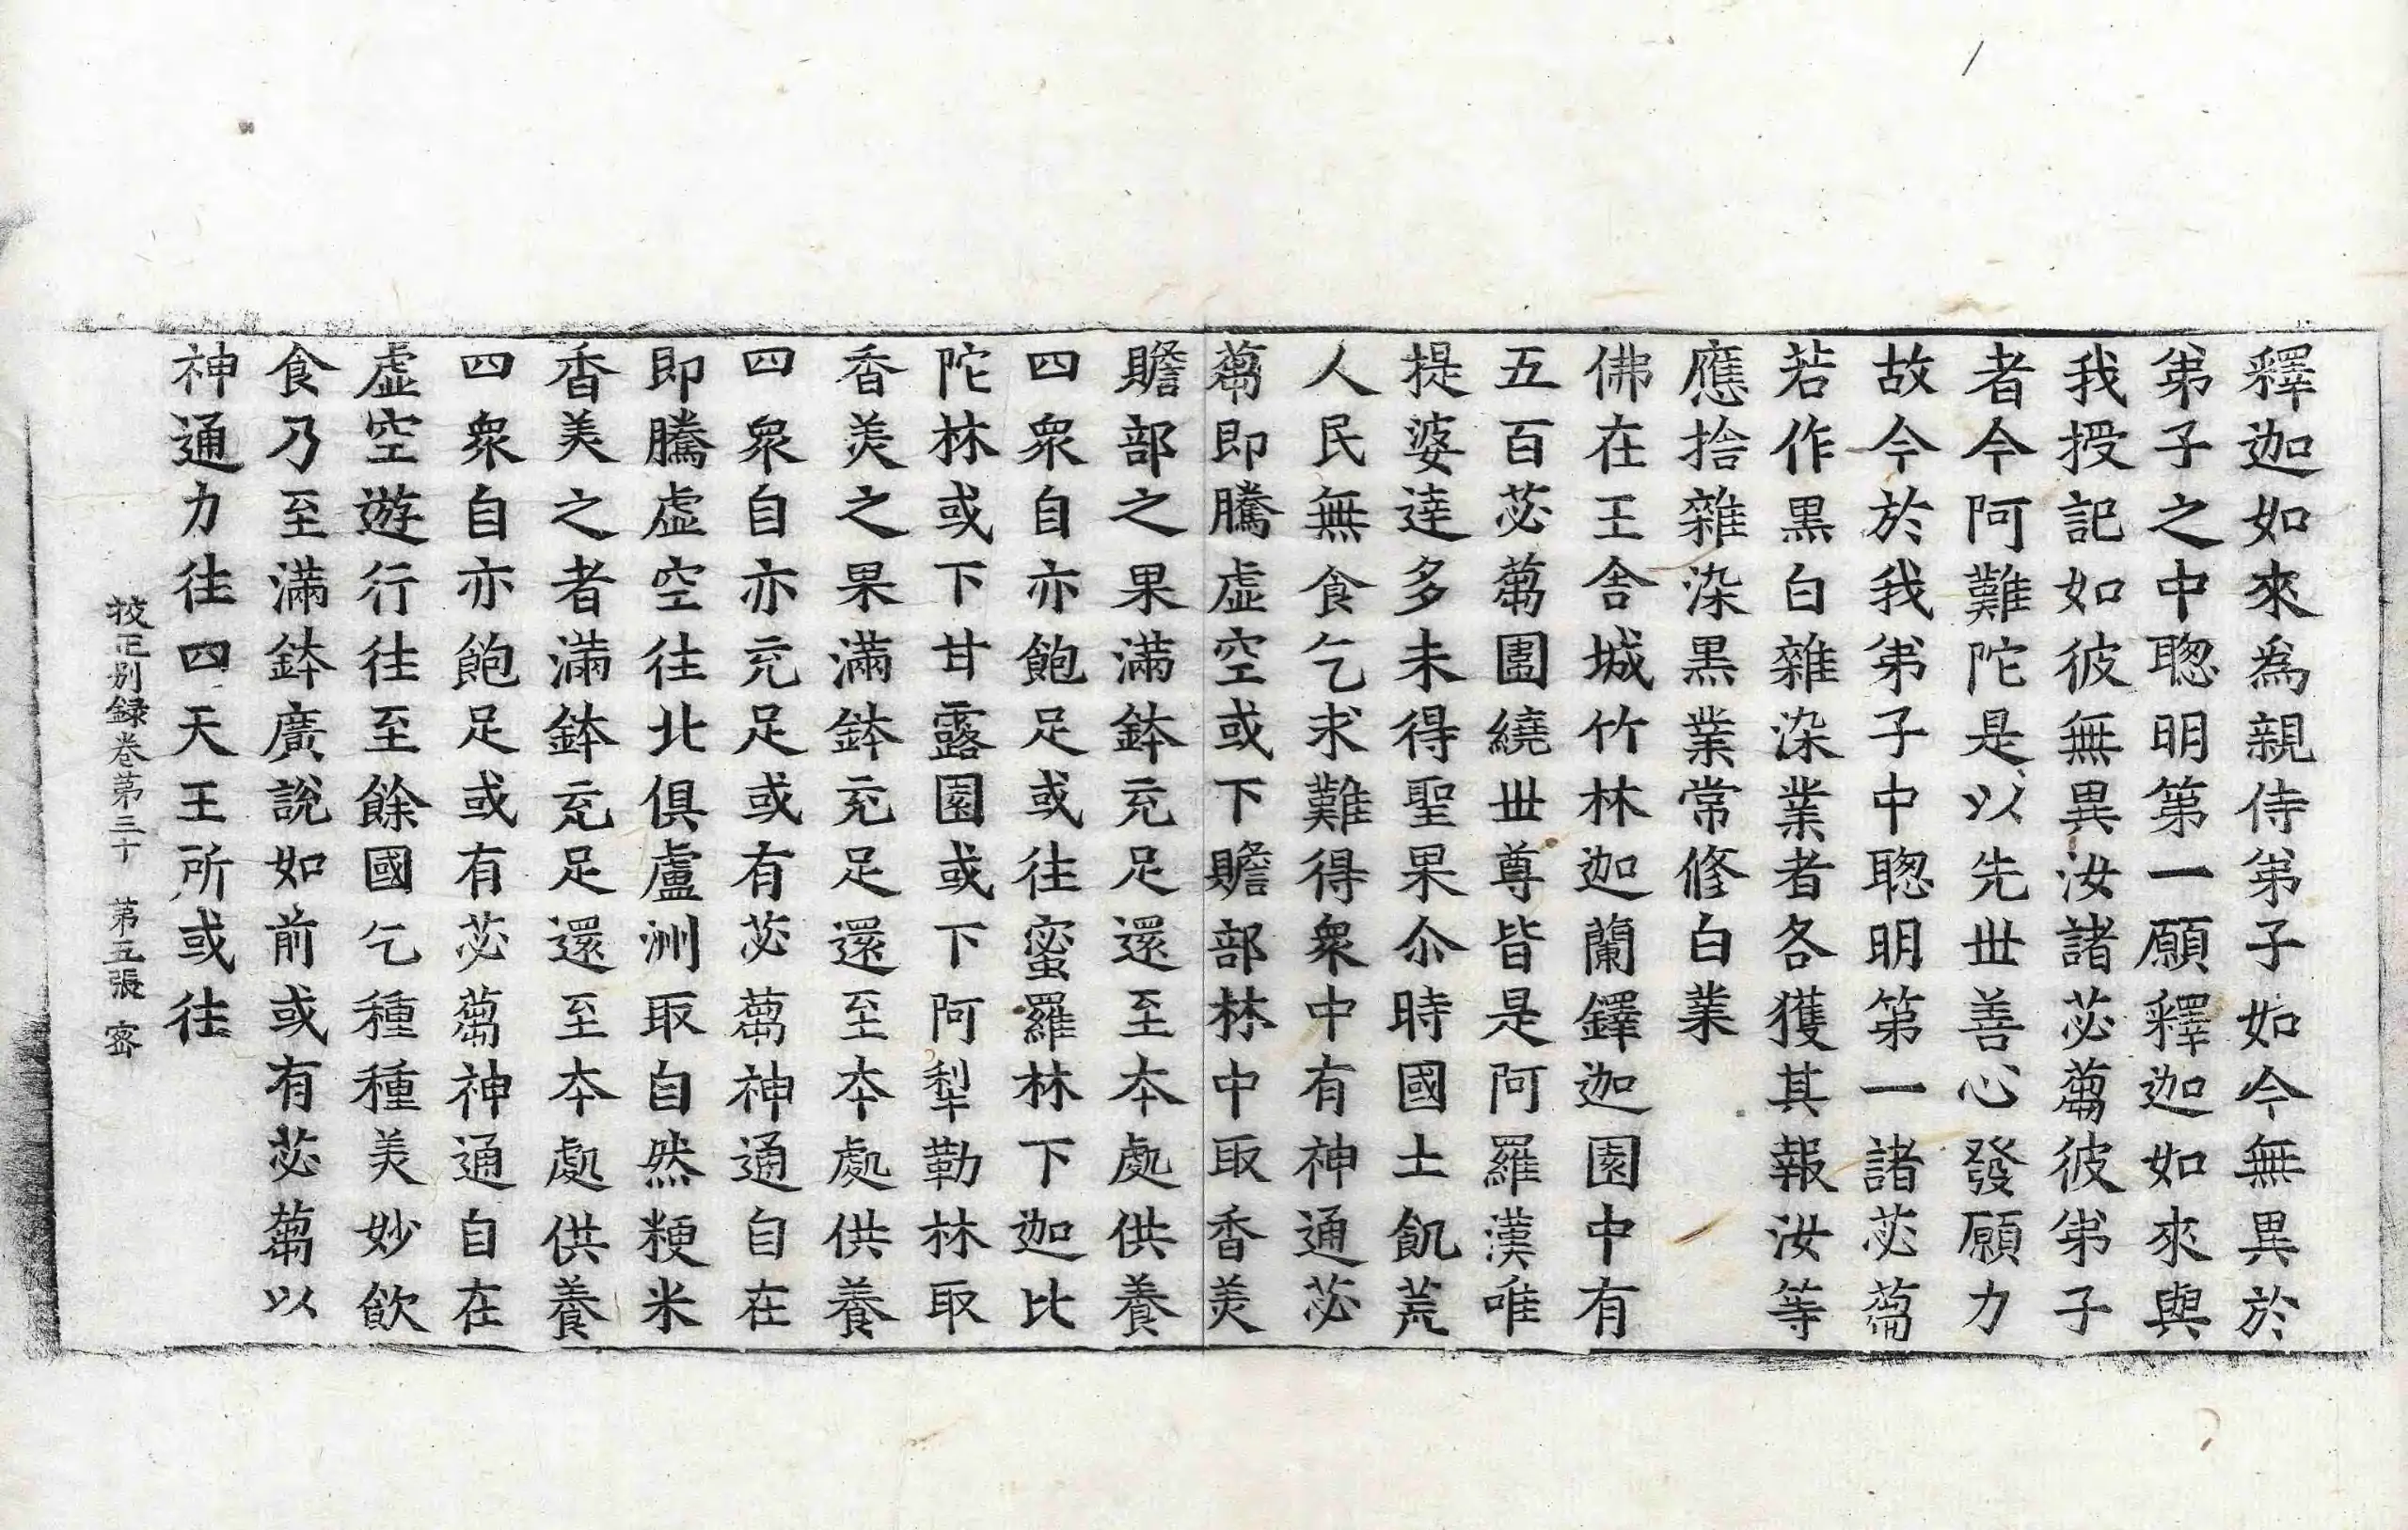 釋迦如來爲親侍弟子如今無異於
弟子之中聦明第一願釋迦如來與
我授記如彼無異汝諸苾蒭彼弟子
者今阿難陀是以先丗善心發願力
故今於我弟子中聦明第一諸苾蒭
若作黒白雜染業者各獲其報汝等
應捨雜染黒業常修白業
佛在王舍城竹林迦蘭鐸迦園中有
五百苾蒭圍繞丗尊皆是阿羅漢唯
提婆達多未得聖果尒時國土飢荒
人民無食乞求難得衆中有神通苾
蒭即騰虛空或下贍部林中取香美
贍部之果滿鉢充足還至本處供養
四衆自亦飽足或往蜜羅林下迦比
陀林或下甘露園或下阿犁勒林取
香美之果滿鉢充足還至本處供養
四衆自亦充足或有苾蒭神通自在
即騰虛空往北俱盧洲取自然粳米
香美之者滿鉢充足還至本處供養
四衆自亦飽足或有苾蒭神通自在
虛空遊行往至餘國乞種種美妙飮
食乃至滿鉢廣說如前或有苾蒭以
神通力往四天王所或往
挍正别録卷第三十　第五張　宻